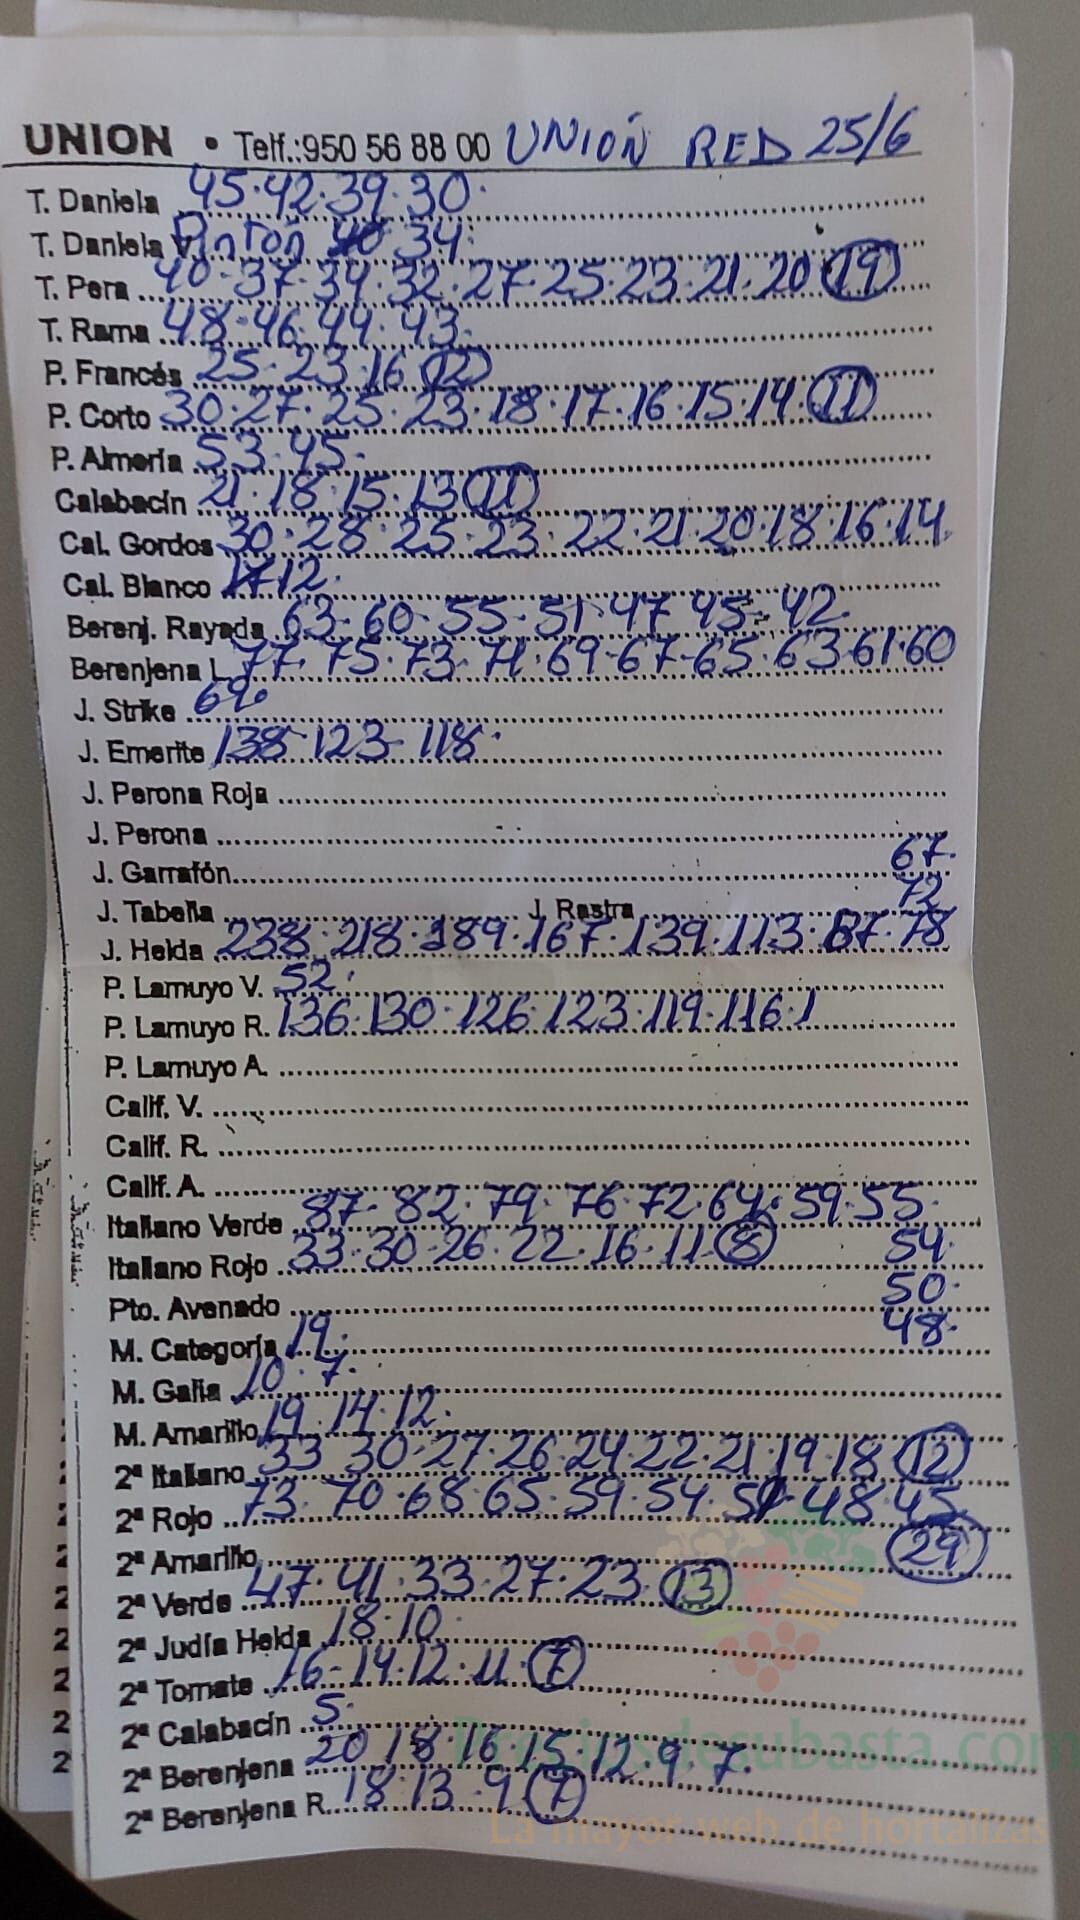 UNION • Telf.:950 56 88 00 UNIÓN RED 25/6
T. Daniela 45·42·39·30·
T. Daniela V. Pintón 34·
T. Pera 40·37·34·32·27·25·23·21·20 19
T. Rama 48·46·44·43·
P. Francés 25·23·16 12
P. Corto 30·27·25·23·18·17·16·15·14· 11
P. Almería 53·45·
Calabacín 21·18·15·13 11
Cal. Gordos 30·28·25·23·22·21·20·18·16·14
Cal. Blanco 12·
Berenj. Rayada 63·60·55·51·47 45·42·
Berenjena L. 77·75·73·71·69·67·65·63·61·60
J. Strike 69·
J. Emerite 138·123·118·
J. Perona Roja
J. Perona
J. Garrafón 67·
J. Tabella J. Rastra 72
J. Helda 238·218·189·167·139·113·87·78
P. Lamuyo V. 52·
P. Lamuyo R. 136·130·126·123·119·116·1
P. Lamuyo A.
Calif. V.
Calif. R.
Calif. A.
Italiano Verde 87·82·79·76·72·64·59·55·
Italiano Rojo 33·30·26·22·16·11· 8 54·
Pto. Avenado 50·
M. Categoría 19· 48·
M. Galia 10·7·
M. Amarillo 19·14·12·
2ª Italiano 33 30·27·26·24·22·21·19·18 12
2ª Rojo 73·70·68·65·59·54· 48·45
2ª Amarillo 29
2ª Verde 47·41·33·27·23· 13
2ª Judía Helda 18·10·
2ª Tomate 16·14·12·11· 7
2ª Calabacín 5·
2ª Berenjena 20 18·16·15·12·9·7·
2ª Berenjena R. 18·13·9· 7
Preciosdesubasta.com
La mayor web de hortalizas